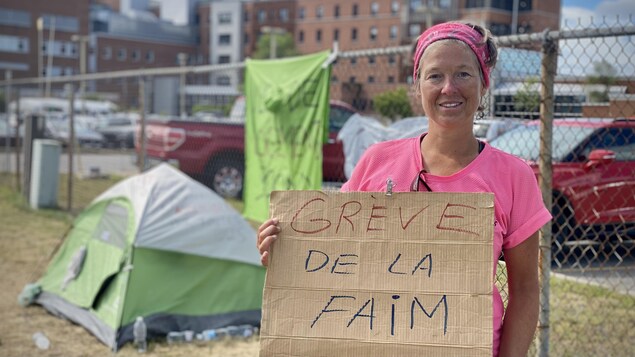 GRÈVE
DE LA
FAiM